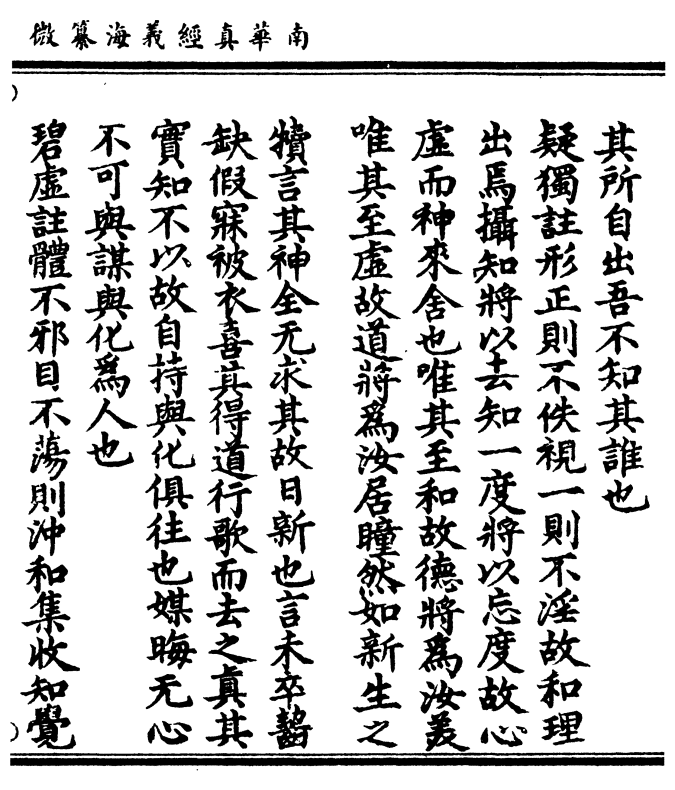 南華真經義海纂微
其所自出吾不知其誰也
疑獨註形正則不佚視一則不淫故和理
出焉攝知將以去知一度將以忘度故心
虛而神來舍也唯其至和故德將爲汝美
唯其至虛故道將爲汝居瞳然如新生之
犢言其神全无求其故日新也言未卒齧
缺假寐被衣喜其得道行歌而去之真其
實知不以故自持與化俱往也媒晦无心
不可與謀與化爲人也
碧虛註體不邪目不蕩則沖和集收知覺